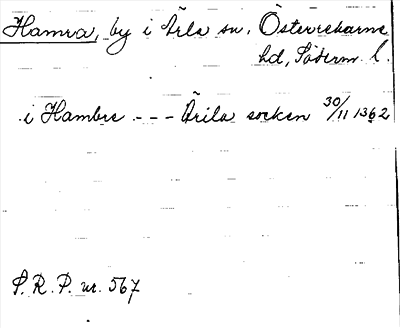 Hamra, by i Ärla sn, Österrekarne
hd, Söderm. l.
i Hambre --- Ärila socken 30/11 1362
S.R.P. nr. 567